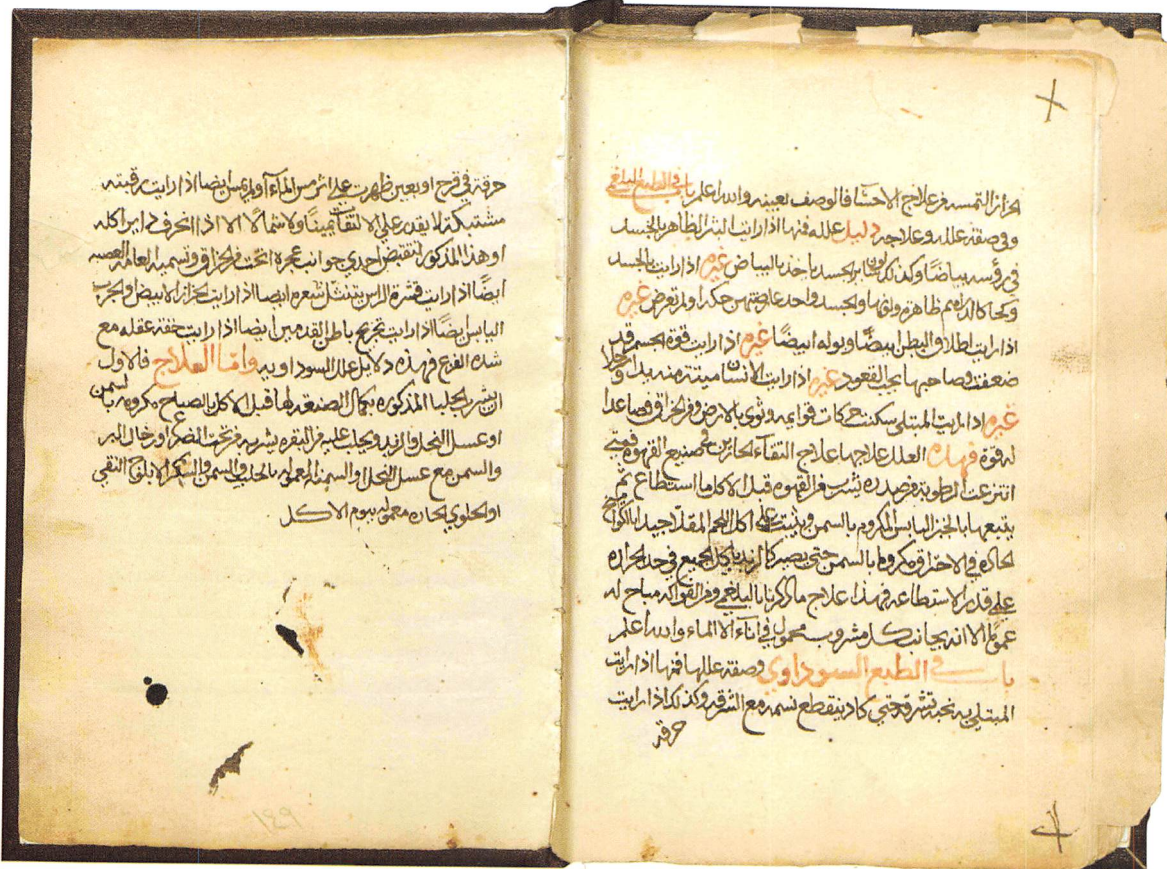 التمسه من علاج الاحشا فالوصف بعينه والله اعلم باب في الطبع البلغمي
وفي صفة علله وعلاجه دليل علله فمنها اذا رايت البثر الظاهر بالجسد
في رؤسه بياضا وكذلك الجسد ياخذ بالبياض غيره اذا رايت بالجسد
وكحا كالدراهم ظاهرة ولونها والجسد واحد عارضتهن حكة او لم تعرض غيره
اذا رايت اطلاق البطن ابيضًا وبوله ابيضًا غيره اذا رايت قوة الجسم قد
ضعفت وصاحبها يحب القعود غيره اذا رايت الانسان ميتة منه يد او رجل
غيره اذا رايت المبتلى سكنت حركات قوايمه وثوى بالارض ومن الحزاق فصاعدا
له قوة فهذه العلل علاجها علاج التقاء صنيع القهوة فمتى
انتزعت الرطوبة من صدره يشرب من القهوة قبل الاكل ما استطاع ثم
يتبعها بالخبز اليابس المكروم بالسمن ويثبت على اكل اللحم المقلا جيدا بالكوامخ
الحاده في الاحتراق مكروما بالسمن حتى يصير كالزبد ياكل الجميع في حد الحراره
على قدر الاستطاعه فهذا علاج ما ذكرنا بالبلغمي ومن الفواكه مباح له
عموما الا انه يجانب كل مشروب محمول في اناء الا الماء والله اعلم
باب في الطبع السوداوي وصفة عللها فمنها اذا رايت
المبتلى به نجبته شرقة حتى كاد ينقطع نسمه مع الشرقة وكذلك اذا رايت
حرقة
حرقة في قرح او بعين ظهرت على اثر مس الماء او لم يمس ايضا اذا رايت رقبته
مشتبكة لا يقدر على الالتفات يمينًا ولا شمالا الا اذا انحرف دايرا كله
او هذا المذكور تنقبض احدى جوانب عجزه اتحت من الحزاق وتسميه العامة العصبه
ايضًا اذا رايت قشرة الراس ينتشل شعره ايضا اذا رايت الحزاز الابيض والجرب
اليابس ايضًا اذا رايت تجريح باطن القدمين ايضا اذا رايت خفة عقله مع
شدة الفزع فهذه دلايل علل السوداويه واما العلاج فالاول
ان يشرب الحليا المذكوره بكمال الصنعة لها قبل الاكل بالصباح مكرومه بالسمن
او عسل النحل والزبد ويحلب عليه من البقره يشربه من تحت الضرع او رخال البر
والسمن مع عسل النحل او السمنة المعمولة بالحليب والسمن والسكر الابلوج النقي
او الحلوى الحارة معمولة بيوم الاكل
١٤٩